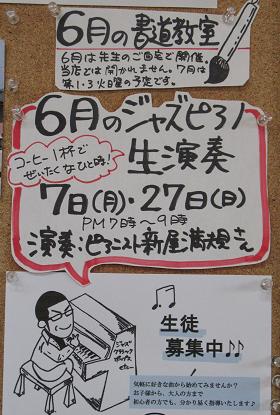 6月の書道教室
6月は先生のご自宅で開催。
当店では開かれません。7月は
第1・3火曜日の予定です。
6月のジャズピアノ
コーヒー1杯で
ぜいたくなひと時!
生演奏
7日(月)・27日(日)
PM7時〜9時
演奏:ピアニスト新屋満規さん
ジャズ
クラシック
ポップス
生徒
募集中♪♪
気軽に好きな曲から始めてみませんか?
お子様から、大人の方まで
初心者の方でも、分かり易く指導いたします♪